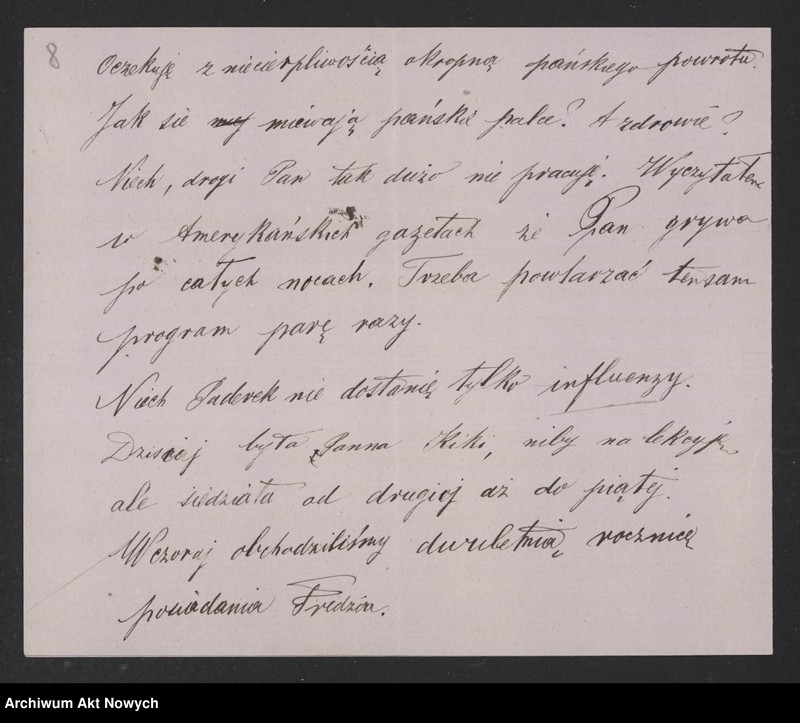 8
Oczekuję z niecierpliwością okropną pańskiego powrotu.
Jak się miewają pańskie palce? A zdrowie?
Niech, drogi Pan tak dużo nie pracuję. Wyczytałem
w Amerekańskich gazetach że Pan grywa
po całych nocach. Trzeba powtarzać tensam
program parę razy.
Niech Paderek nie dostanię tylko influenzy.
Dzisiej była Panna Kiki, niby na lekcyję
ale siedziała od drugiej aż do piątej.
Wczoraj obchodziliśmy dwuletnią rocznicę
posiadania Fredzia.
Archiwum Akt Nowych